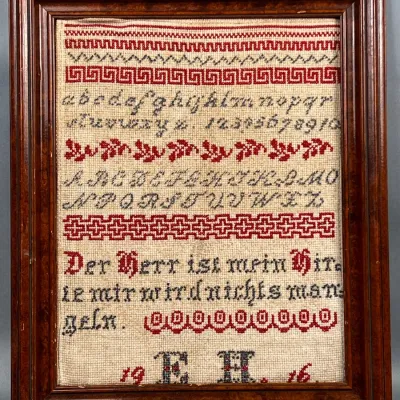 abcdefghijklmnopqr
stuvwxyz. 12345678910
ABCDEFGHIJKLMO
NPQRSTUVWXZ
Der Herr ist mein Hir-
te mir wird nichts man-
geln.
19 E. H. 16